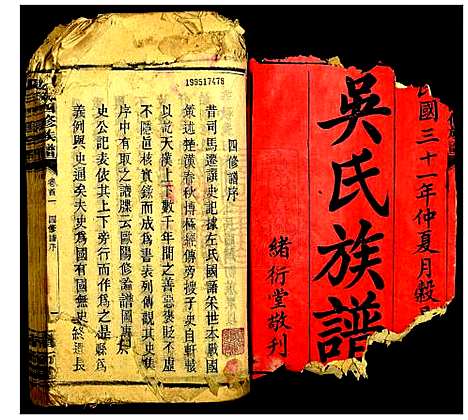 國三十一年仲夏月穀
吳氏族譜
緒衍堂敬刊
199517478
四修譜序
昔司馬遷讓史記據左氏國語采世本戰國
策述楚漢春秋博極經傳旁搜子史自軒轅
以訖天漢上下數千年間之善惡褒貶不虛
不隱迺核實錄而成為書表列傳觀其史
序中有取之譜牒云歐陽修
史公記表依其上下旁行而作為之是縣為
義例與史迥矣夫史為國有國無史終遜長
四修族譜
卷首一
四修譜序